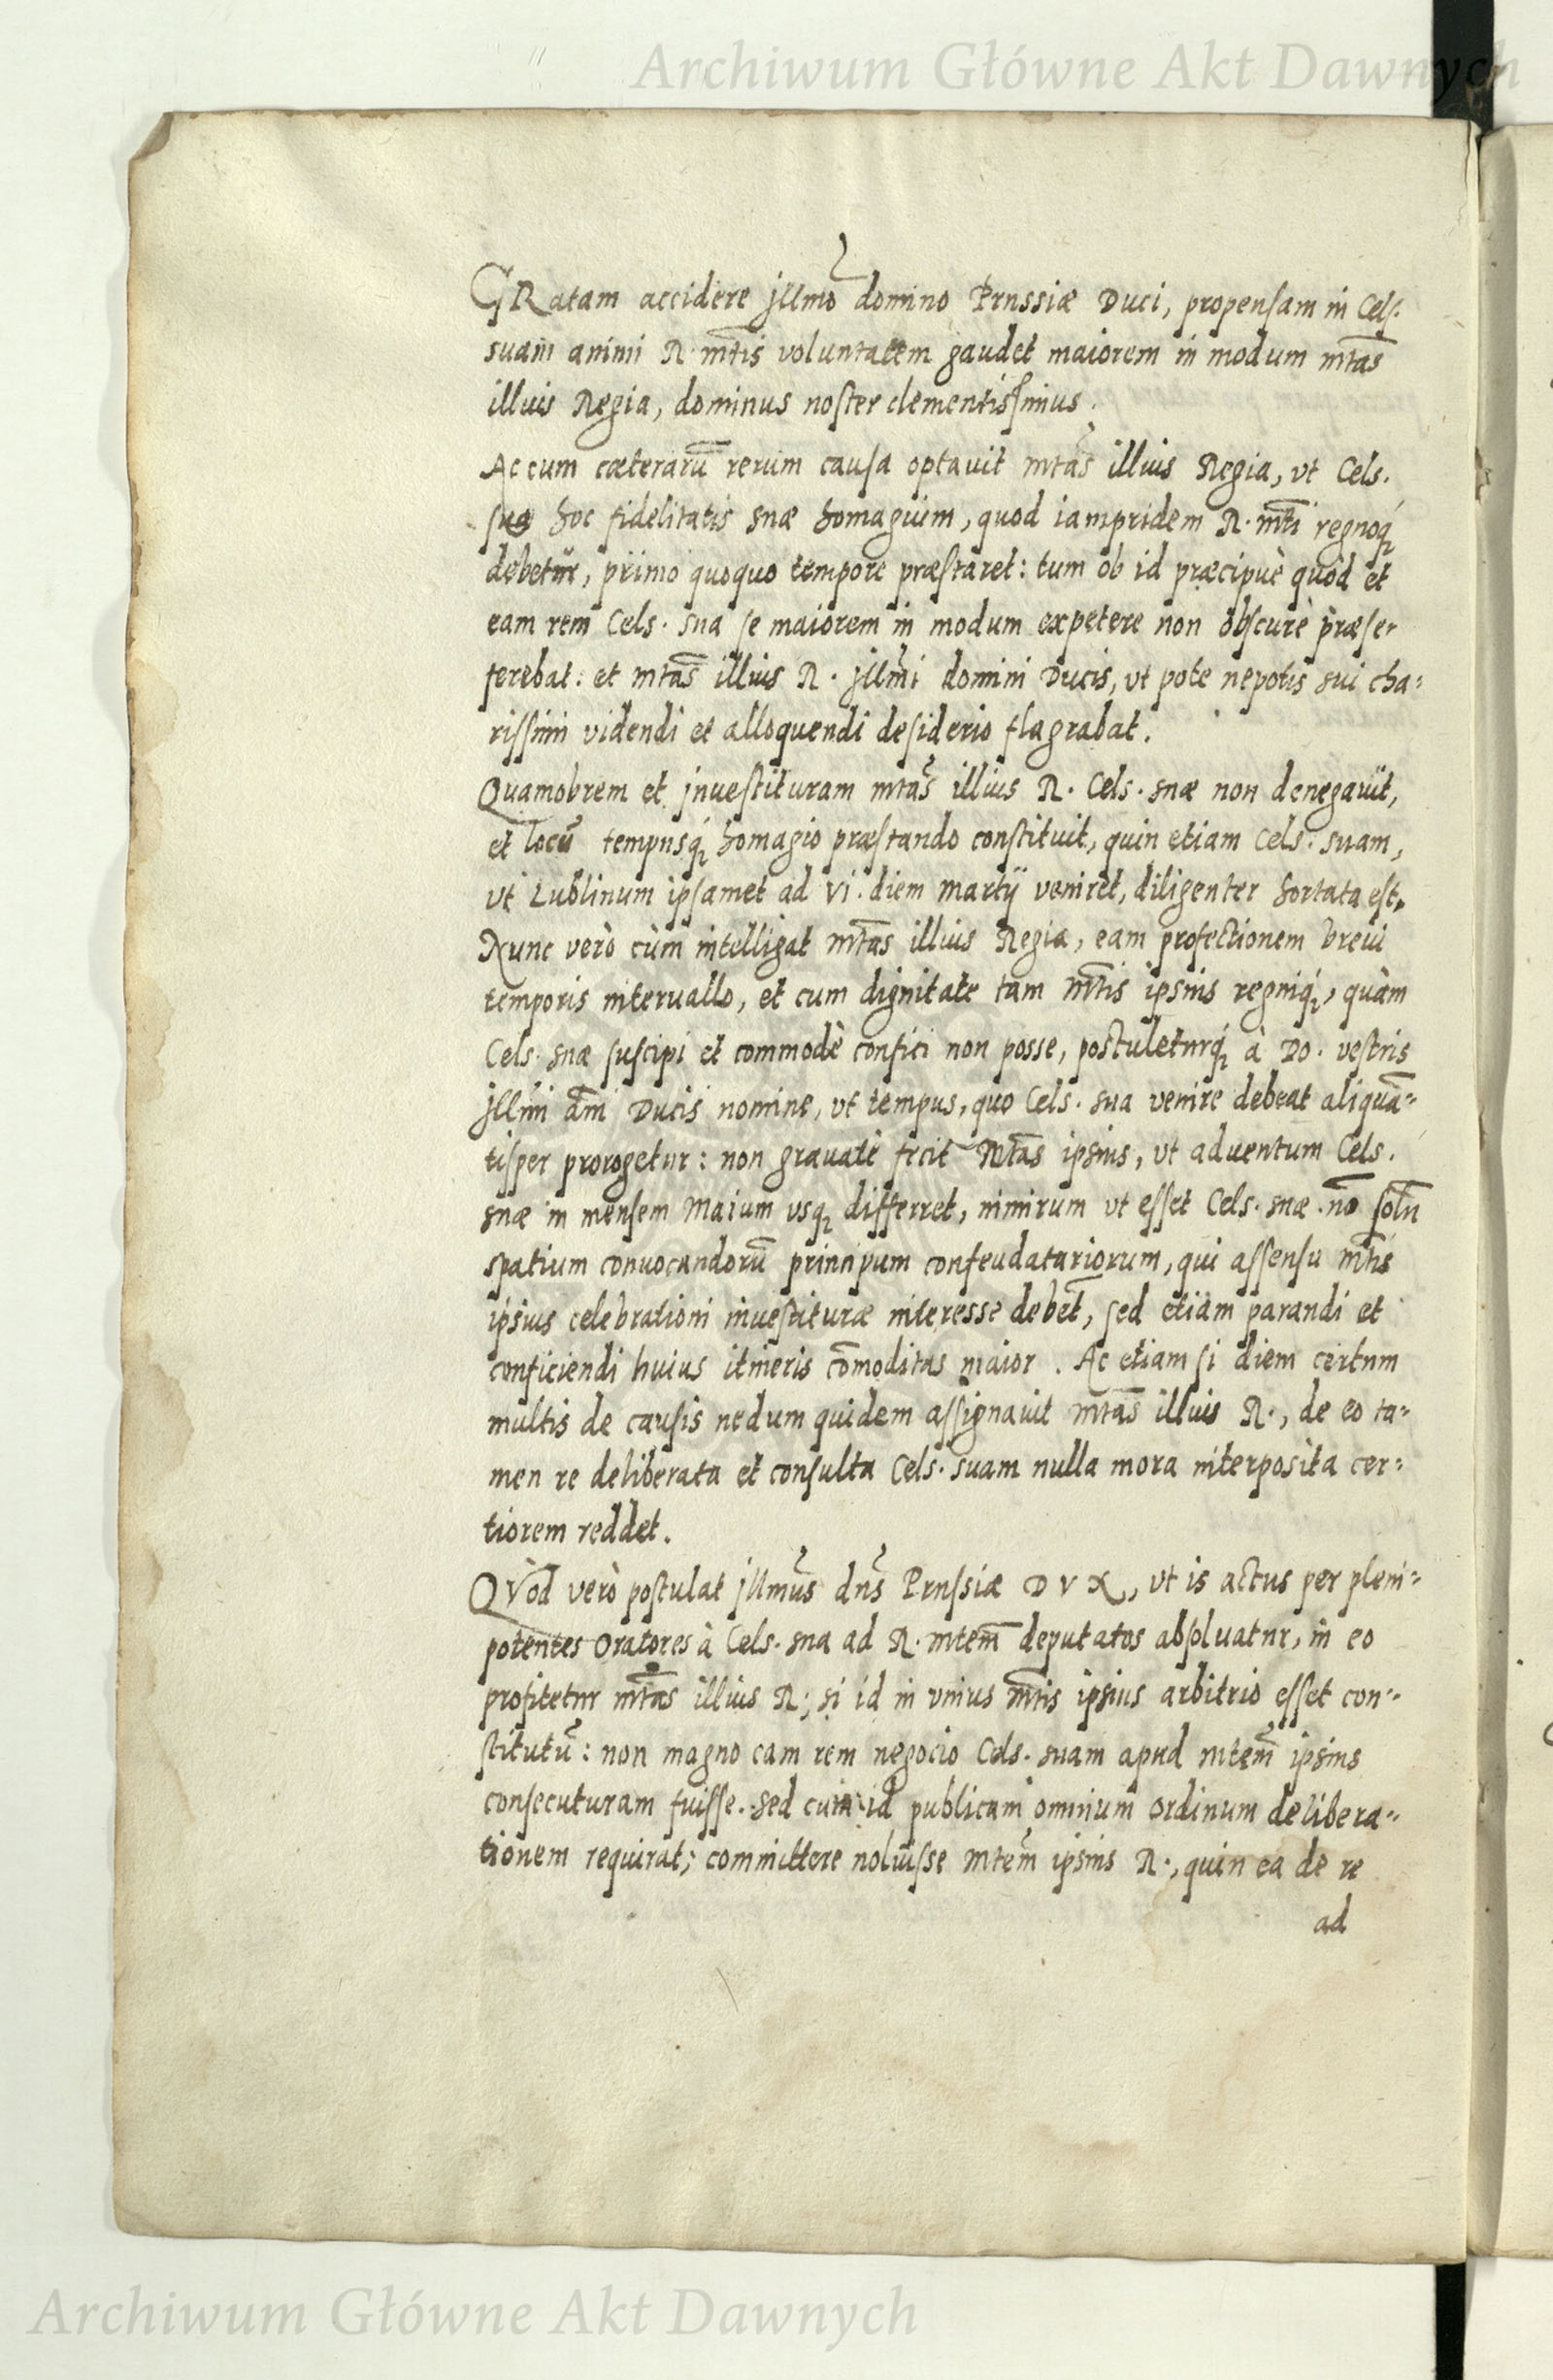 Archiwum Główne Akt Dawnych
GRatam accidere jllmo domino Prussiæ Duci, propensam in Cels.
suam animi R. mtis voluntatem gaudet maiorem in modum mtas
illius Regia, dominus noster clementissimus.
Ac cum cæterarũ rerum causa optauit mtas illius Regia, vt Cels.
sua hoc fidelitatis suæ homagium, quod iampridem R. mti regnoq́
debetur, primo quoquo tempore præstaret: tum ob id præcipuè quòd et
eam rem Cels. sua se maiorem in modum expetere non obscurè præse-
ferebat: et mtas illius R. jllmi domini Ducis, vt pote nepotis sui cha-
rissimi videndi et alloquendi desiderio flagrabat.
Quamobrem et jnuestituram mtas illius R. Cels. suæ non denegauit,
et locũ tempusq́ homagio præstando constituit, quin etiam Cels. suam,
vt Lublinum ipsamet ad vi. diem martij veniret, diligenter hortata est.
Nunc verò cùm intelligat mtas illius Regia, eam profectionem breui
temporis interuallo, et cum dignitate tam Mtis ipsius regniq́, quàm
Cels. suæ suscipi et commodè confici non posse, postuleturq́ à Do. vestris
jllmi dni Ducis nomine, vt tempus, quo Cels. sua venire debeat aliquã-
tisper prorogetur: non grauatè fecit Mtas ipsius, vt aduentum Cels.
suæ in mensem Maium vsq differret, nimirum vt esset Cels. suæ nõ solũ
spatium conuocandorũ principum confeudatariorum, qui assensu Mtis
ipsius celebrationi inuestituræ interesse debẽt, sed etiam parandi et
conficiendi huius itineris cõmoditas maior. Ac etiam si diem certum
multis de causis nedum quidem assignauit mtas illius R., de eo ta-
men re deliberata et consulta Cels. suam nulla mora interposita cer-
tiorem reddet.
QVòd verò postulat jllmus dns Prussiæ DVX, vt is actus per pleni-
potentes Oratores à Cels. sua ad R. mtem deputatos absoluatur, in eo
profitetur mtas illius R; si id in vnius Mtis ipsius arbitrio esset con-
stitutũ: non magno eam rem negocio Cels. suam apud mtem ipsius
consecuturam fuisse. Sed cum id publicam omnium ordinum delibera-
tionem requirat; committere noluisse Mtem ipsius R., quin ea de re
ad
Archiwum Główne Akt Dawnych